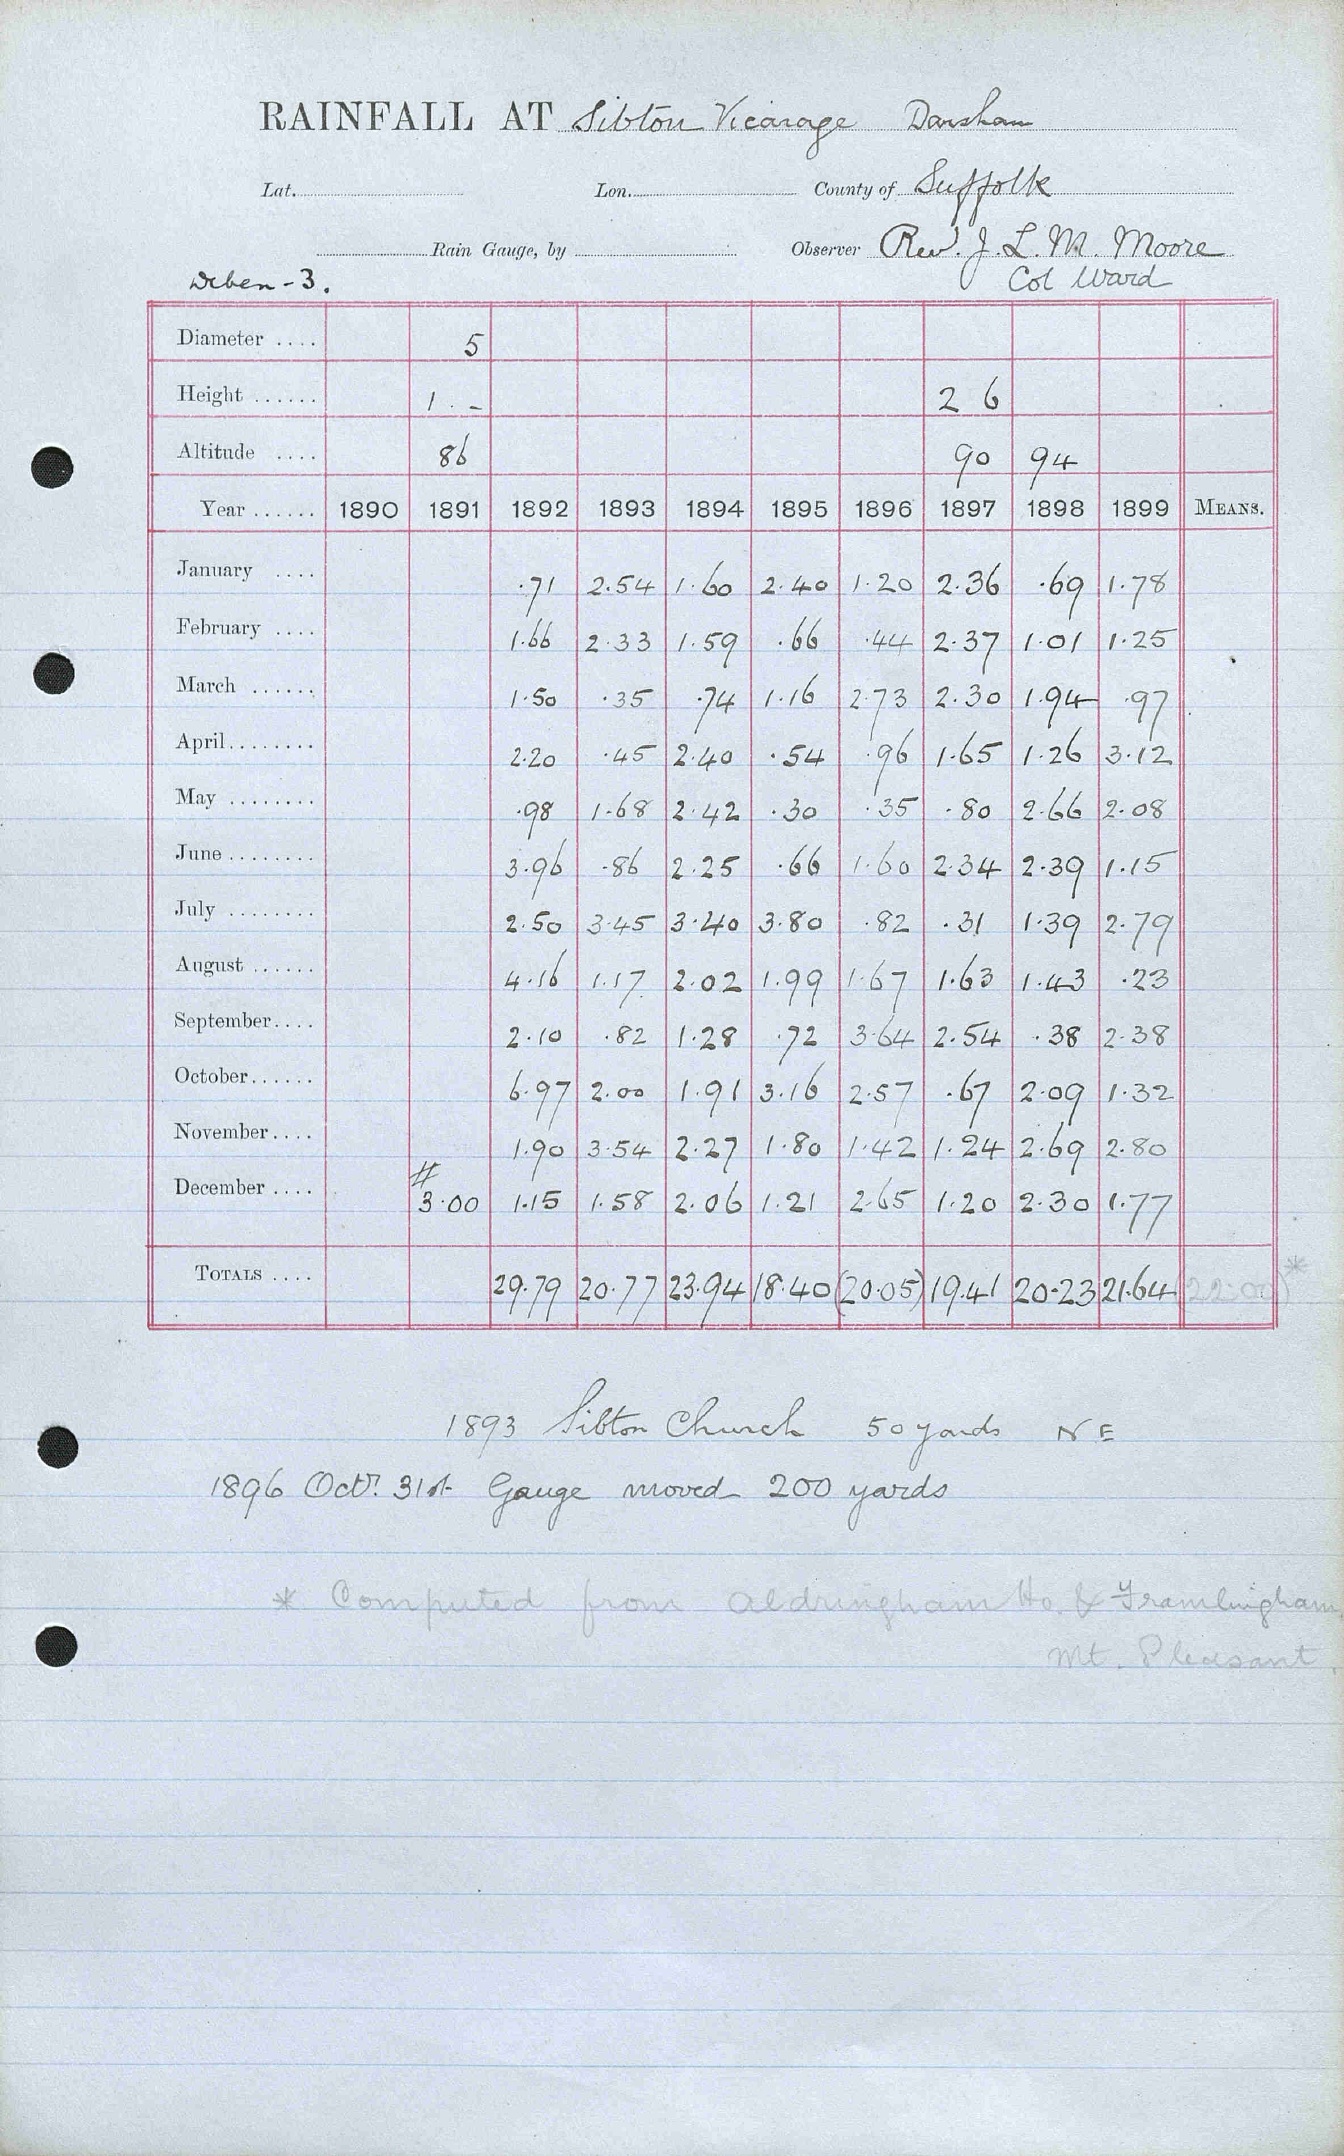 RAINFALL AT Sibton Vicarage Darsham
Lat. Lon. County of Suffolk
Rain Gauge, by Observer Rev. J. L. M. Moore
Deben - 3. Col Ward
Diameter .... 5
Height ...... 1 . - 2 6
Altitude .... 86 90 94
Year ...... 1890 1891 1892 1893 1894 1895 1896 1897 1898 1899 MEANS.
January .... .71 2.54 1.60 2.40 1.20 2.36 .69 1.78
February .... 1.66 2.33 1.59 .66 .44 2.37 1.01 1.25
March ...... 1.50 .35 .74 1.16 2.73 2.30 1.94 .97
April........ 2.20 .45 2.40 .54 .96 1.65 1.26 3.12
May ........ .98 1.68 2.42 .30 .35 .80 2.66 2.08
June........ 3.96 .86 2.25 .66 1.60 2.34 2.39 1.15
July ........ 2.50 3.45 3.40 3.80 .82 .31 1.39 2.79
August ...... 4.16 1.17 2.02 1.99 1.67 1.63 1.43 .23
September.... 2.10 .82 1.28 .72 3.64 2.54 .38 2.38
October...... 6.97 2.00 1.91 3.16 2.57 .67 2.09 1.32
November.... 1.90 3.54 2.27 1.80 1.42 1.24 2.69 2.80
December .... # 3.00 1.15 1.58 2.06 1.21 2.65 1.20 2.30 1.77
TOTALS .... 29.79 20.77 23.94 18.40 (20.05) 19.41 20.23 21.64 (22.00)*
1893 Sibton Church 50 yards NE
1896 Octr. 31st Gauge moved 200 yards
* Computed from Aldringham Ho. & Framlingham
Mt. Pleasant.